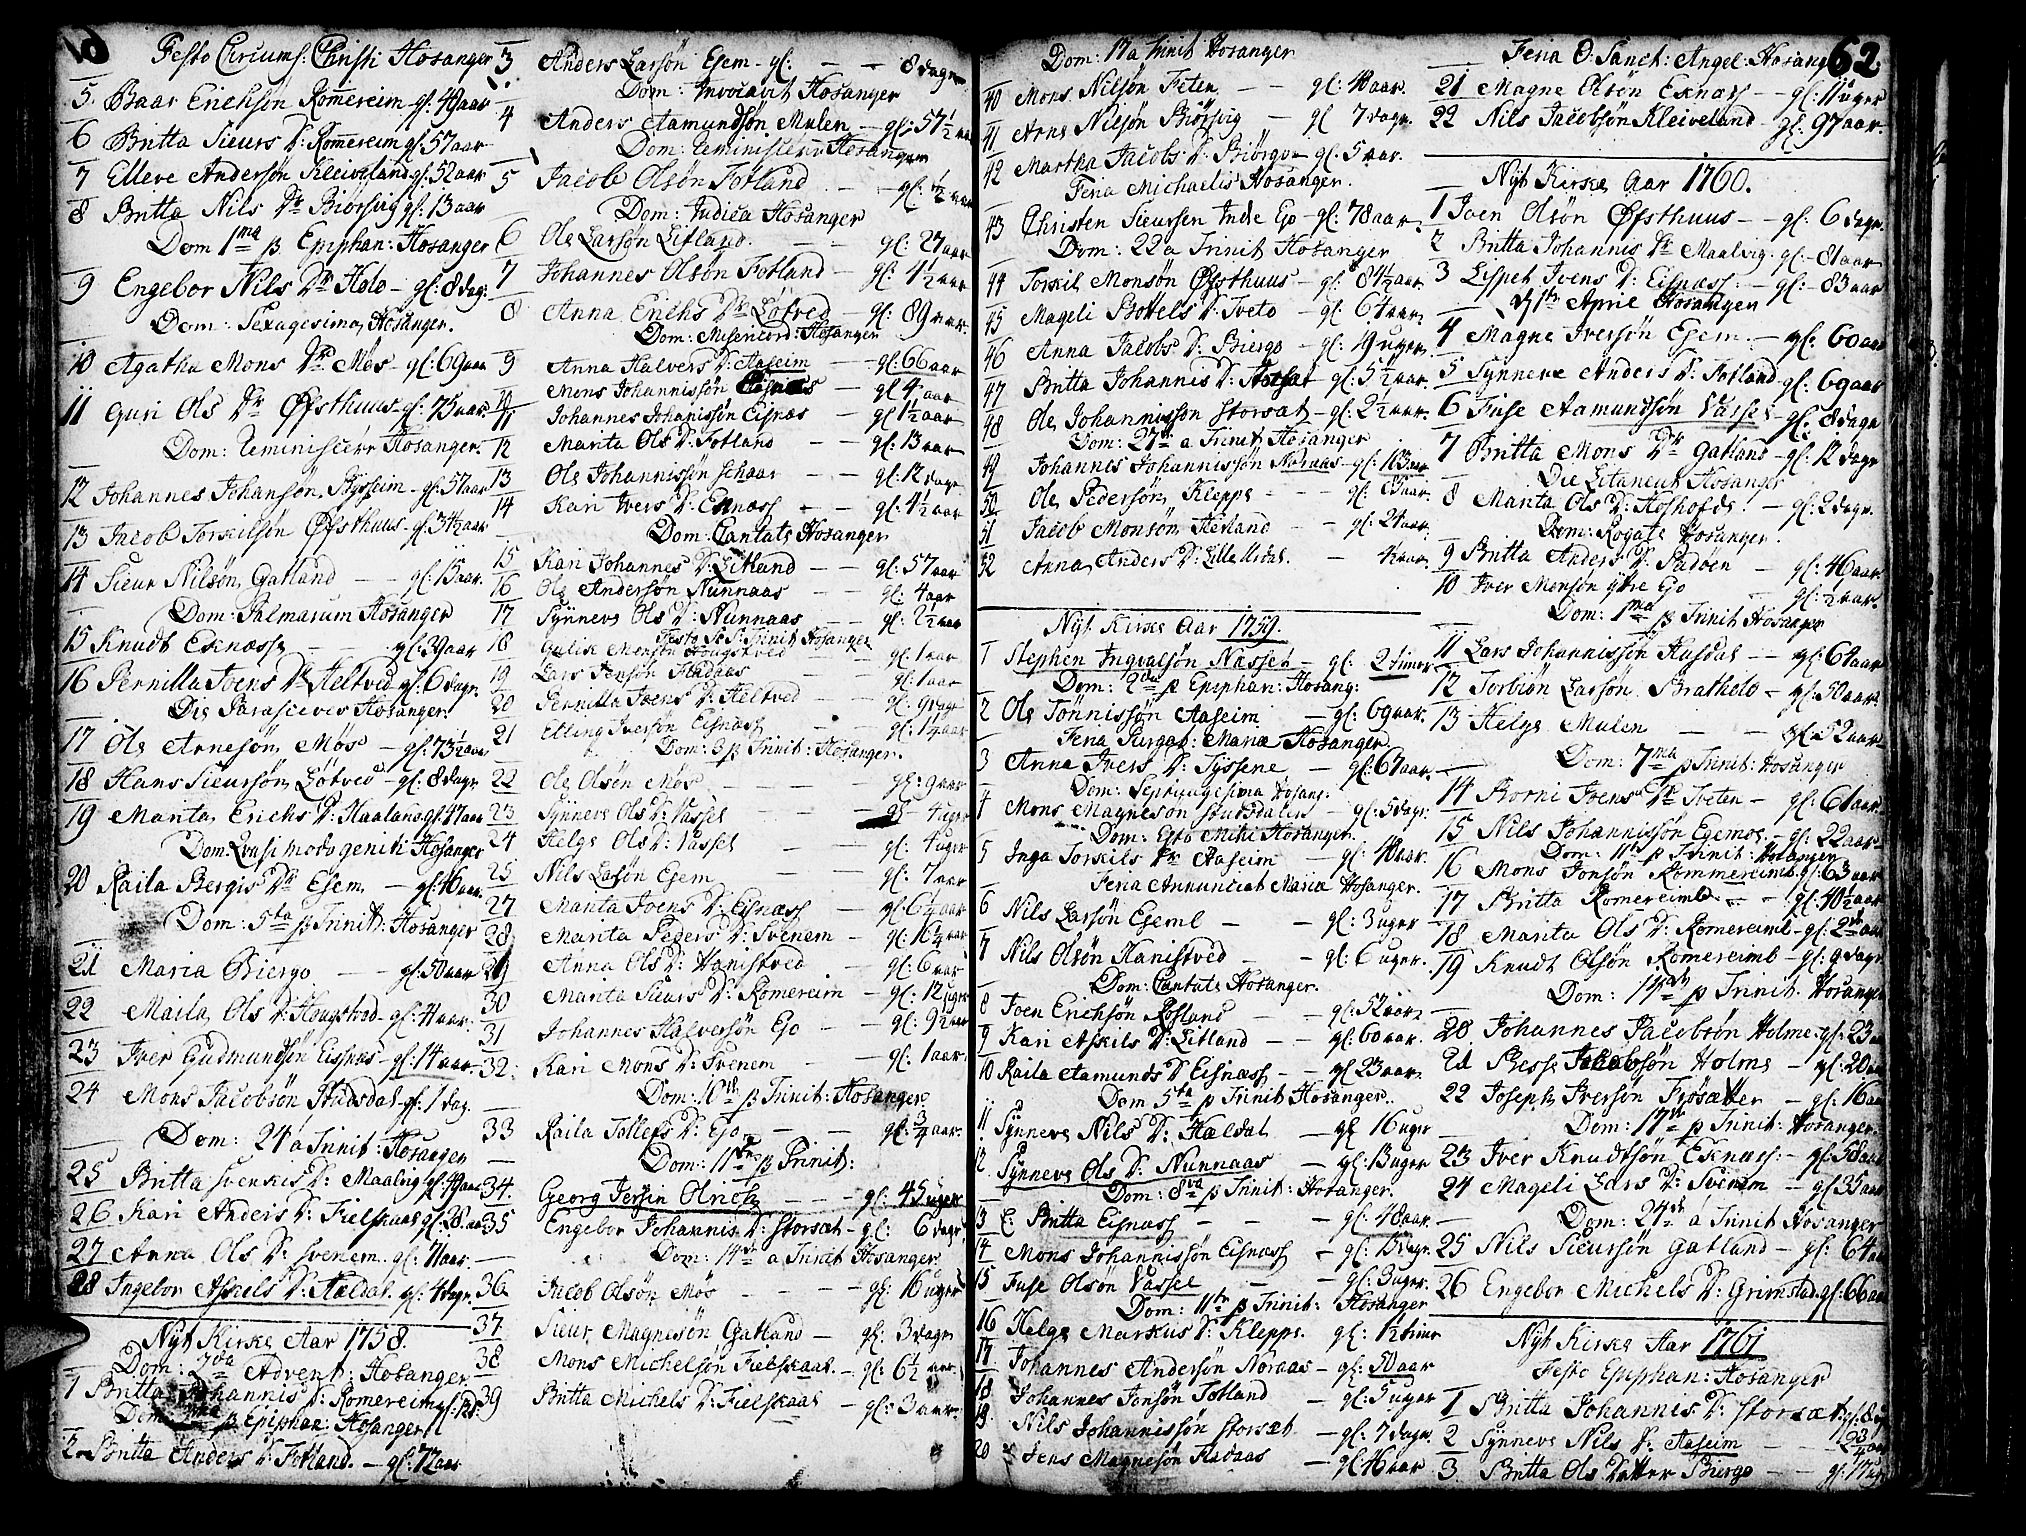 Festo Circums: Christi Hosanger
5. Baar Erichsøn Romereim gl: 49 aar
6 Britta Sieurs Dr: Romereim gl: 57 aar
7 Elleve Andersøn Kleiveland gl: 52 aar
8 Britta Nils Dr Biørsvig gl: 13 aar
Dom 1ma p Epiphan: Hosanger
9 Engebor Nils Dr Holo - gl: 8 dag:
Dom: Sexagesima Hosanger.
10 Agatha Mons Dr Møs - gl: 69 aar
11 Guri Ols Dr Øfsthuus gl: 75 aar.
Dom: Reminiscere Hosanger.
12 Johannes Johansøn Bysseim - gl: 57 aar
13 Jacob Torkilsøn Øfsthuus gl: 34½ aar
14 Sieur Nilsøn Gatland - - gl: 15 aar.
Dom: Palmarum Hosanger
15 Knudt Exnæss - - gl: 39 aar
16 Pernilla Joens Dr Heltved gl: 6 dagr.
Die Parasceves Hosanger.
17 Ole Arnesøn Møs - gl: 73½ aar
18 Hans Sieursøn Løtved - gl: 8 dagr
19 Marita Erichs Dr: Haaland gl: 47 aar
Dom. Quasimodogeniti Hosanger
20 Raila Bergis Dr Esem - gl: 16 aar.
Dom: 5ta p Trinit: Hosanger
21 Maria Biergo - - gl: 50 aar
22 Maila Ols Dr: Hougstved - gl: 41 aar.
23 Iver Gudmundsøn Eisnæs - gl: 14 aar.
24 Mons Jacobsøn Studsdal gl: 1 dag.
Dom: 24 a Trinit: Hosanger
25 Britta Svenskis Dr: Maalvig gl: 49 aar
26 Kari Anders Dr: Fielskaal gl: 28 aar
27 Anna Ols Dr Svenem gl: 71 aar.
28 Ingebor Askels Dr: Hældal gl: 4 dagr.
Nyt Kirke Aar 1758.
Dom: 2da Advent: Hosanger
1 Britta Johannis Dr: Romereim gl:
Dom: 1ma p Epiphan: Hosanger
2 Britta Anders Dr: Fotland. - gl: 72 aar
3 Anders Larsøn Esem - gl: - - 8 dage
Dom: Invocavit Hosanger
4 Anders Aamundsøn Mulen - gl: 57½ aar
Dom: Reminiscere Hosanger
5 Jacob Olsøn Fotland - - gl: ½ aar
Dom: Judica Hosanger
6 Ole Larsøn Litland. - - gl: 27 aar
7 Johannes Olsøn Fotland - gl: 4½ aar
8 Anna Erichs Dr Løtved - gl: 89 aar
Dom: Misericord: Hosanger
9 Anna Halvers Dr: Aaseim - gl: 66 aar
10 Mons Johannissøn Eisnæs - gl 4 aar
11 Johannes Johanissøn Eisnæs - gl 1½ aar
12 Marita Ols Dr: Fotland - - gl: 13 aar
13 Ole Johannissøn Schaar - - gl: 12 dagr
14 Kari Ivers Dr: Exnæss - - gl: 4½ aar
Dom: Cantate Hosanger
15 Kari Johannes Dr: Litland - - gl: 57 aar
16 Ole Andersøn Nunnaas - - gl: 4 aar
17 Synneve Ols Dr: Nunnaas - - gl: 2½ aar
Festo S: S: Trinit Hosanger
18 Gulik Monsøn Hougstved - - gl: 1 aar
19 Lars Jensøn Fladaas - - gl: 1 aar
20 Pernilla Joens Dr: Heltved - gl: 9 dagr
21 Elling Iversøn Eisnæss - gl: 1¼ aar
Dom: 3 p Trinit: Hosanger.
22 Ole Olsøn Møs - - - gl: 9 aar
23 Synneve Ols Dr: Vassel - - 4 uger
24 Helge Ols Dr: Vassel - gl: 4 uger
25 Nils Lasøn Esem - - gl: 7 aar
27 Marita Joens Dr: Eisnæss - gl 6½ aar
28 Marita Peders Dr: Svenem - gl: 16¼ aar
29 Anna Ols Dr: Hanistved - gl: 6 aar
30 Marita Sieurs Dr: Romereim - gl: 12 uger
31 Johannes Halversøn Ejo - - gl: 9½ aar
32. Kari Mons Dr: Svenem - - gl: 1 aar
Dom: 10de p Trinit: Hosanger
33 Raila Tollefs Dr: Ejo - - gl: ¾ aar.
Dom: 11te p Trinit:
34. Georg Jersin Olrich - - - gl: 45 uger
35 Engebor Johannis Dr: Storsæt - gl: 6 dagr,
Dom: 14de a Trinit Hosanger.
36 Jacob Olsøn Møs - - - gl: 16 uger
37. Sieur Magnesøn Gatland - gl: 3 dagr
38 Mons Michelsøn Fielskaal - gl: 6½ aar
39 Britta Michels Dr: Fielskaal - gl: 3 aar.
Dom: 17 a Trinit Hosanger
40 Mons Nilsøn Feten - - gl: 40 aar.
41 Arne Nilsøn Biørsvig - gl 7 dagr.
42 Martha Jacobs Dr Biørgo - gl. 5 aar.
Feria Michaelis Hosanger.
43 Christen Sieursen Indre Ejo - gl: 78 aar.
Dom: 22 a Trinit Hosanger
44 Torskil Monsøn Øfsthuus - gl: 84½ aar
45 Mageli Botels Dr: Tveto - gl: 64 aar.
46 Anna Jacobs Dr: Biergo - gl: 19 uger
47 Britta Johannis Dr: Storsæt - gl: 5½ aar.
48 Ole Johannissøn Storsæt - gl: 2½ aar.
Dom: 27de a Trinit Hosanger
49 Johannes Johannissøn Noraas - gl: 103 aar
50 Ole Pedersøn Kleppe - - gl: 61 aar.
51 Jacob Monsøn Hetland - - gl: 24 aar.
52 Anna Anders Dr: Lille Urdal. - 4½ aar.
Nyt Kirke Aar 1759.
1 Stephen Ingvalsøn Nasset - gl: 2 timer
Dom: 2da p Epiphan: Hosang:
2 Ole Tønnissøn Aaseim - gl: 69 aar.
Feria Purgat: Mariæ Hosanger
3 Anna Ivers Dr: Tyssene - gl: 67 aar.
Dom: Septuagesima Hosang:
4 Mons Magneson Studsdalen - gl: 5 dagr.
Dom: Esto Mihi Hosanger.
5 Inga Torkils Dr Aaseim - gl: 40 aar.
Feria Annunciat Mariæ Hosanger.
6 Nils Larsøn Eseml - - gl: 3 uger
7 Nils Olsøn Hanistved - - gl: 6 uger.
Dom: Cantate Hosanger.
8 Joen Erichsøn Fotland - gl: 52 aar.
9 Kari Askils Dr: Litland - - gl: 60 aar.
10 Raila Aamunds Dr Eisnæss - - gl 23 aar.
Dom 5ta p Trinit Hosanger.
11 Synneve Nils Dr: Hældal - gl 16 uger
12 Synneve Ols Dr: Nunnaas - gl: 13 uger
Dom: 8va p Trinit: Hosanger.
13 E: Britta Eisnæss - - - gl: 48 aar.
14 Mons Johannissøn Eisnæss - gl: 13 dagr.
15 Fuse Olsøn Vassel - - gl: 3 uger.
Dom: 11te p Trinit: Hosanger
16 Helge Markus Dr: Kleppe. - gl: 1½ timer
17 Johannes Andersøn Noraas - gl: 50 aar
18 Johannes Jonsøn Fotland - gl: 5 uger
19. Nils Johannissøn Storsæt - gl: 7 dagr.
20 Jens Magnesøn Fladaas - gl: 46 aar
62
Feria O: Sanct: Angel: Hosang
21 Magne Olsøn Exnæss - - gl: 11 uger
22 Nils Jacobsøn Kleiveland - gl: 97 aar.
Nyt Kirke Aar 1760.
1 Joen Olsøn Øfsthuus - - gl: 6 dagr.
2 Britta Johannis Dr Maalvig. gl: - 81 aar
3 Lispet Joens Dr: Eisnæss: - gl: - 83 aar
d. 1ste April Hosanger
4 Magne Iversøn Esem. - gl: 60 aar
5 Synneve Anders Dr: Fotland gl: 69 aar
6 Fuse Aamundsøn Vassel - gl: 8 dage
7 Britta Mons Dr Gatland - gl: 12 dage
Die Litaneut Hosanger
8 Marita Ols Dr: Hoshofde - gl: 2 dagr.
Dom: Rogate Hosanger.
9 Britta Anders Dr: Padøen - gl: 46 aar
10 Iver Monsøn ytre Ejo - gl: ½ aar.
Dom: 1ma p Trinit Hosanger
11 Lars Johannissøn Husdal - - gl: 64 aar
12 Torbiøn Larsøn Bratholo - gl: 50 aar
13 Helge Mulen - - gl: 52 aar.
Dom: 7ma p Trinit: Hosanger
14 Borni Joens Dr Tveten - gl: 61 aar.
15 Nils Johannissøn Esemoe - gl: 22 aar.
Dom: 11te p Trinit: Hosanger
16 Mons Jonsøn Rommereim gl: 63 aar
17 Britta Romereiml - - gl: 40½ aar
18 Marita Ols Dr: Romereiml - gl: 2 aar
19 Knudt Olsøn Romereiml - gl: 9 dagr
Dom: 14de p Trinit. Hosanger
20 Johannes Jacobsøn Holme gl: 23
21 Besse Jacobsøn Holme - gl: 20
22 Joseph Iversøn Tiøsætter - gl: 16 aar
Dom: 17de p Trinit: Hosanger.
23 Iver Knudtsøn Exnæss: - gl: 58 aar
24 Mageli Lars Dr: Svenem - gl 35 aar
Dom: 24de a Trinit Hosanger
25 Nils Sieursøn Gatland - gl: 64
26 Engebor Michels Dr: Grimstad gl: 66 aar
Nyt Kirke Aar 1761
Festo Epiphan: Hosanger
1 Britta Johannes Dr: Storsæt gl: 8
2 Synneve Nils Dr: Aaseim - -
3 Britta Ols Datter Biergo - - gl: 17